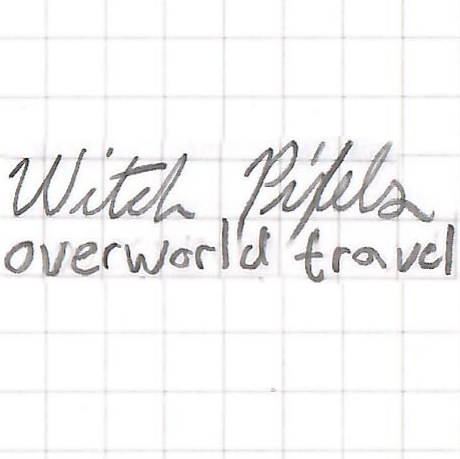 Witch Pixels
overworld travel